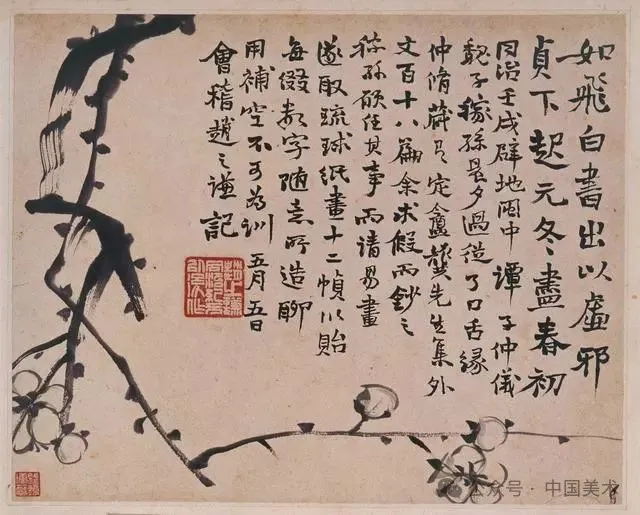 如飛白書出以虛邪
貞下起元冬盡春初
同治壬戌辟地閩中譚子仲儀
魏子稼孫晨夕過從了口舌緣
仲脩藏有定盦龔先生集外
文百十八篇余求假而鈔之
稼孫願任其事而請易畫
遂取琉球紙畫十二幀以貽
每綴數字隨意所造聊
用補空不可為訓 五月五日
會稽趙之謙記
公众号·中国美术